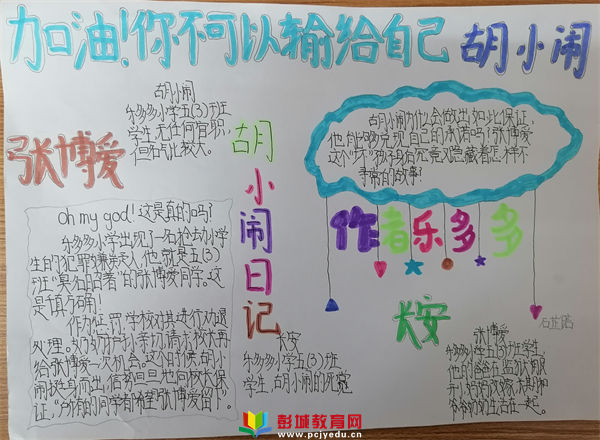 加油!你不可以输给自己 胡小闹
胡小闹
乐多多小学五(3)班
学生,无任何官职,
但名声比较大。
张博爱
胡小闹日记
胡小闹为什么会做出如此保证,
他能够兑现自己的承诺吗?张博爱
这个"坏"孩子身后究竟又隐藏着怎样不
寻常的故事?
作者乐多多
Oh my god!这是真的吗?
乐多多小学出现了一名抢劫小学
生的犯罪嫌疑人,他就是五(3)
班"臭名昭著"的张博爱同学。这
是千真万确!
作为惩罚,学校对其进行劝退
处理。奶奶
亲切请求校长再
给张博爱一次机会。这个时候,胡小
闹挺身而出,信誓旦旦地向校长保
证,"所有的同学都希望张博爱留下"。
长安
长安
乐多多小学五(3)班
学生,胡小闹的死党
张博爱
乐多多小学五(3)班学生,
他的爸爸在监狱
和
爷爷奶奶生活在一起。
彭城教育网
www.pcjyedu.cn